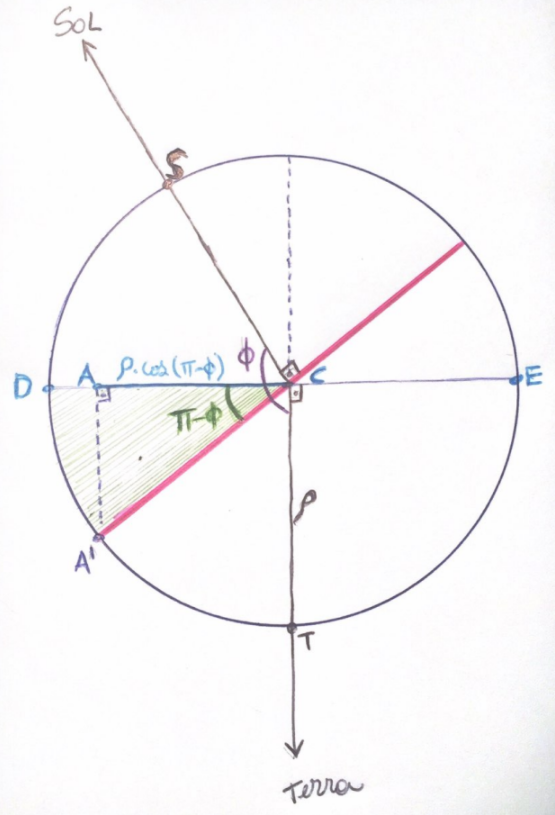 SOL
S
ϕ
D
A
ρ.cos(π-ϕ)
C
E
π-ϕ
ρ
A'
T
Terra